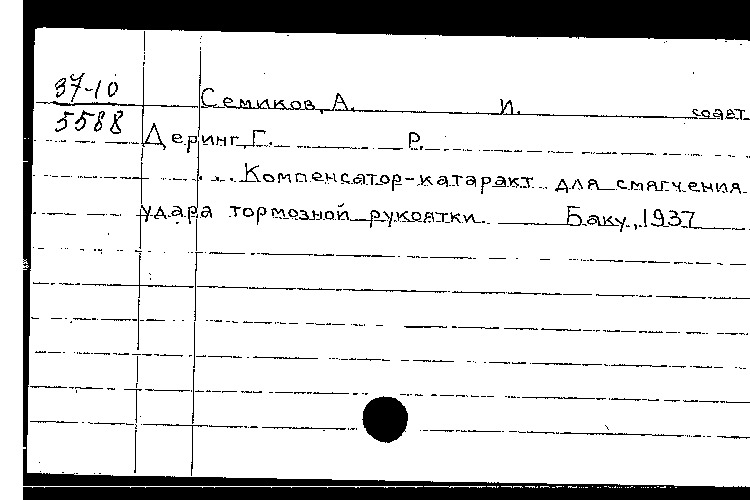 37-10
5588
Семиков, А. И. соавт.
Деринг, Г. Р.
... Компенсатор-катаракт для смягчения
удара тормозной рукоятки Баку, 1937